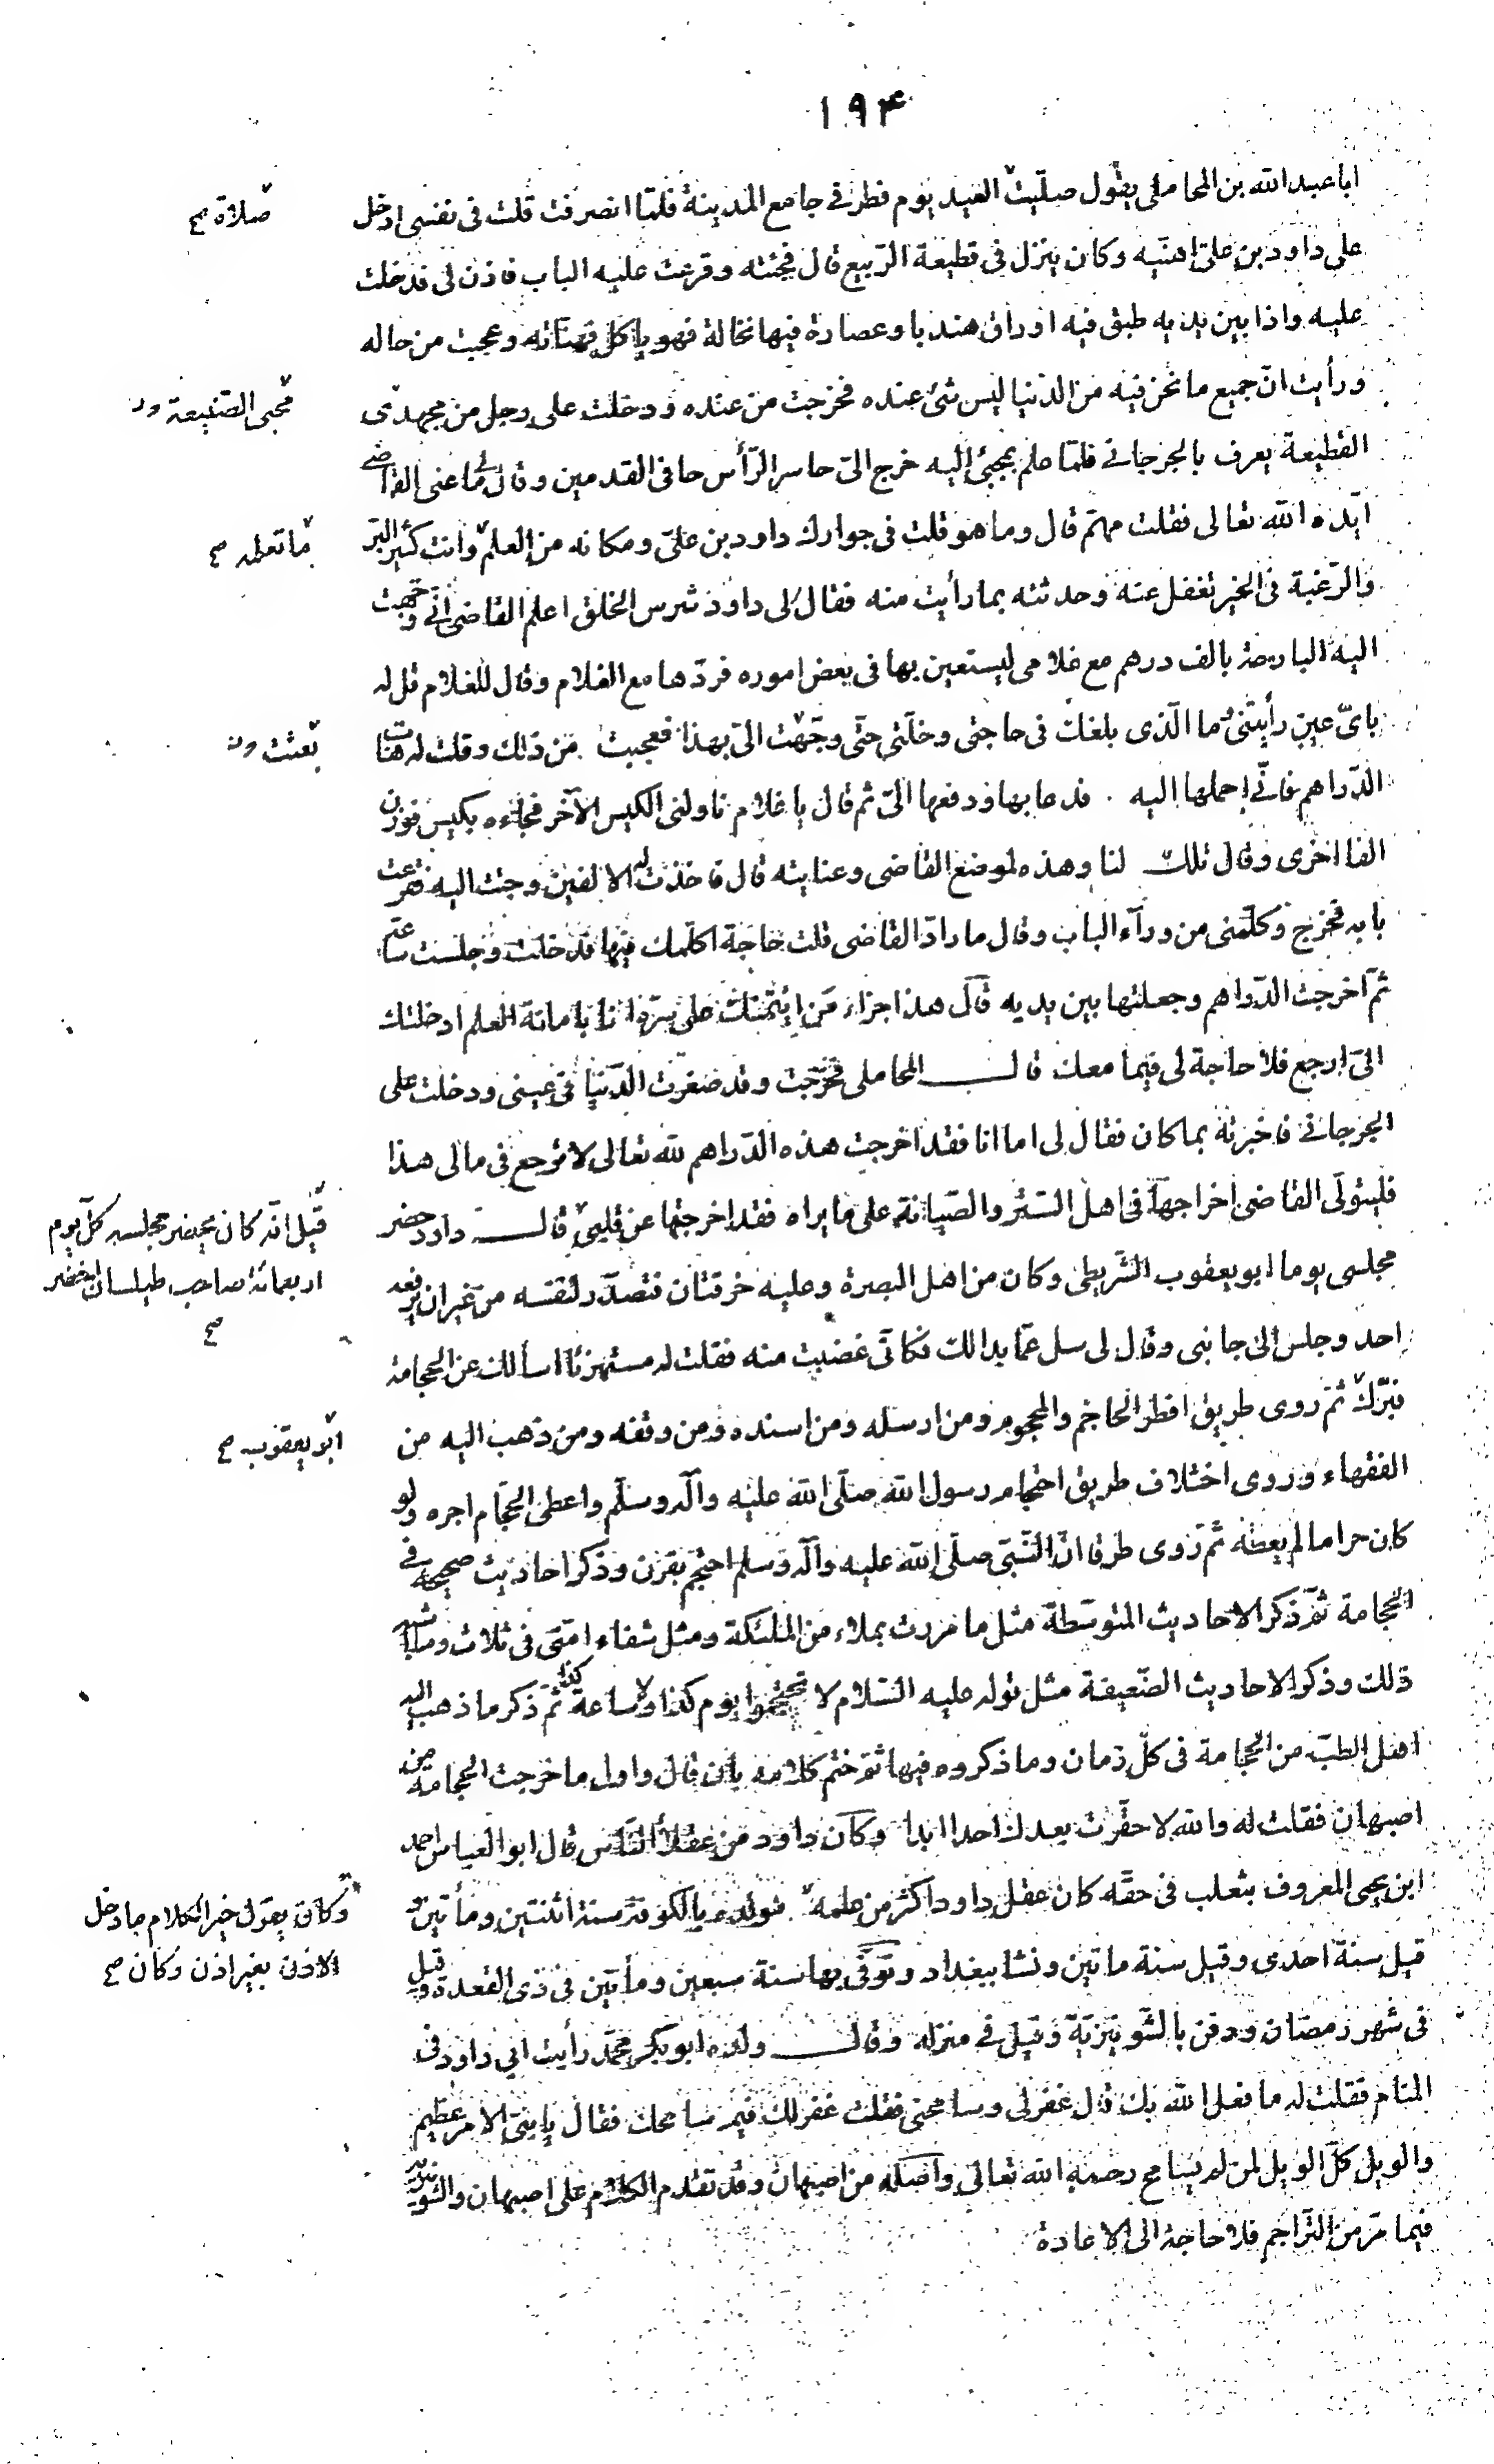 ۱۹۴
ابا عبد الله بن المحاملى يقول صلّيت العيد يوم فطر فى جامع المدينة فلمّا انصرفت قلت فى نفسى ادخل
صلاة صح
على داود بن علىّ اهنّيه وكان ينزل فى قطيعة الرّبيع قال فجئته وقرعت عليه الباب فاذن لى فدخلت
عليه واذا بين يديه طبق فيه اوراق هندبا وعصارة فيها نخالة فهو يأكل فهنّأته وعجبت من حاله
ورأيت انّ جميع ما نحن فيه من الدّنيا ليس شئ عنده فخرجت من عنده ودخلت على رجل من مجهدى
محبى الصّنيعة ون
القطيعة يعرف بالجرجانى فلمّا علم بمجيئ اليه خرج الىّ حاسر الرّأس حافى القدمين وقال لى ما عنى القاضى
ايّده الله تعالى فقلت مهمّ قال وما هو قلت فى جوارك داود بن علىّ ومكانه من العلم وانت كثير البرّ
ما تعلمه صح
والرّغبة فى الخير تغفل عنه وحدثته بما رأيت منه فقال لى داود شرس الخلق اعلم القاضى انّى وجّهت
اليه البارحة بالف درهم مع غلامى ليستعين بها فى بعض اموره فردّها مع الغلام وقال للغلام قل له
باىّ عين رأيتنى وما الّذى بلغك فى حاجتى وخلّتى حتّى وجّهت الىّ بهذا فعجبت من ذلك وقلت له هات
بعثت ون
الدّراهم فانّى احملها اليه . فدعا بها ودفعها الىّ ثم قال يا غلام ناولنى الكيس الآخر فجاءه بكيس فوزن
الفا اخرى وقال تلك لنا وهذه لموضع القاضى وعنايته قال فاخذت له الالفين وجئت اليه فقرعت
بابه فخرج وكلّمنى من ورآء الباب وقال ما رادّ القاضى قلت حاجة اكلّمك فيها فدخلت وجلست ساعة
ثمّ اخرجت الدّراهم وجعلتها بين يديه قال هذا جزاء من ائتمنك على سرّه انا بامانة العلم ادخلتك
الىّ ارجع فلا حاجة لى فيما معك قال المحاملى فخرجت وقد صغرت الدّنيا فى عينى ودخلت على
الجرجانى فاخبرته بما كان فقال لى اما انا فقد اخرجت هذه الدّراهم لله تعالى لا ترجع فى مالى هذا
فليتولّى القاضى اخراجها فى اهل السّتر والصّيانة على ما يراه فقد اخرجتها عن قلبى قال داود حضر
قيل انّه كان يحضر مجلسه كلّ يوم
اربعمائة صاحب طيلسان اخضر
صح
مجلسى يوما ابو يعقوب الشّريطى وكان من اهل البصرة وعليه خرقتان فتصدّر لنفسه من غير ان يرفعه
احد وجلس الى جانبى وقال لى سل عمّا بدا لك فكانّى غضبت منه فقلت له مستهزئا اسألك عن الحجامة
فبرك ثمّ روى طريق افطر الحاجم والمحجوم ومن ارسله ومن اسنده ومن وقفه ومن ذهب اليه من
ابو يعقوب صح
الفقهاء وروى اختلاف طريق احتجام رسول الله صلّى الله عليه وآله وسلّم واعطى الحجّام اجره ولو
كان حراما لم يعطه ثمّ روى طرق انّ النّبىّ صلّى الله عليه وآله وسلم احتجم بقرن وذكر احاديث صحيحة فى
الحجامة ثمّ ذكر الاحاديث المتوسّطة مثل ما مررت بملاء من الملئكة ومثل شفاء امّتى فى ثلاث وما اشبه
ذلك وذكر الاحاديث الضّعيفة مثل قوله عليه السّلام لا تحتجموا يوم كذا ولا ساعة كذا ثمّ ذكر ما ذهب اليه
اهل الطبّ من الحجامة فى كلّ زمان وما ذكروه فيها ثمّ ختم كلامه بان قال واول ما خرجت الحجامة من
اصبهان فقلت له والله لا حقّرت بعدك احدا ابدا وكان داود من عقلاء النّاس قال ابو العباس احمد
ابن يحيى المعروف بثعلب فى حقّه كان عقل داود اكثر من علمه مولده بالكوفة سنة اثنتين ومأتين و
وكان يقول خير الكلام ما دخل
الاذن بغير اذن وكان صح
قيل سنة احدى وقيل سنة ماتين ونشا ببغداد وتوفّى بها سنة سبعين ومأتين فى ذى القعدة وقيل
فى شهر رمضان ودفن بالشّونيزيّة وقيل فى منزله وقال ولده ابو بكر محمّد رأيت ابى داود فى
المنام فقلت له ما فعل الله بك قال غفر لى وسامحنى فقلت غفر لك فيم سامحك فقال يا بنىّ الامر عظيم
والويل كلّ الويل لمن لم يسامح رحمه الله تعالى واصله من اصبهان وقد تقدم الكلام على اصبهان والشّونيزيّة
فيما مرّ من التّراجم فلا حاجة الى الاعادة